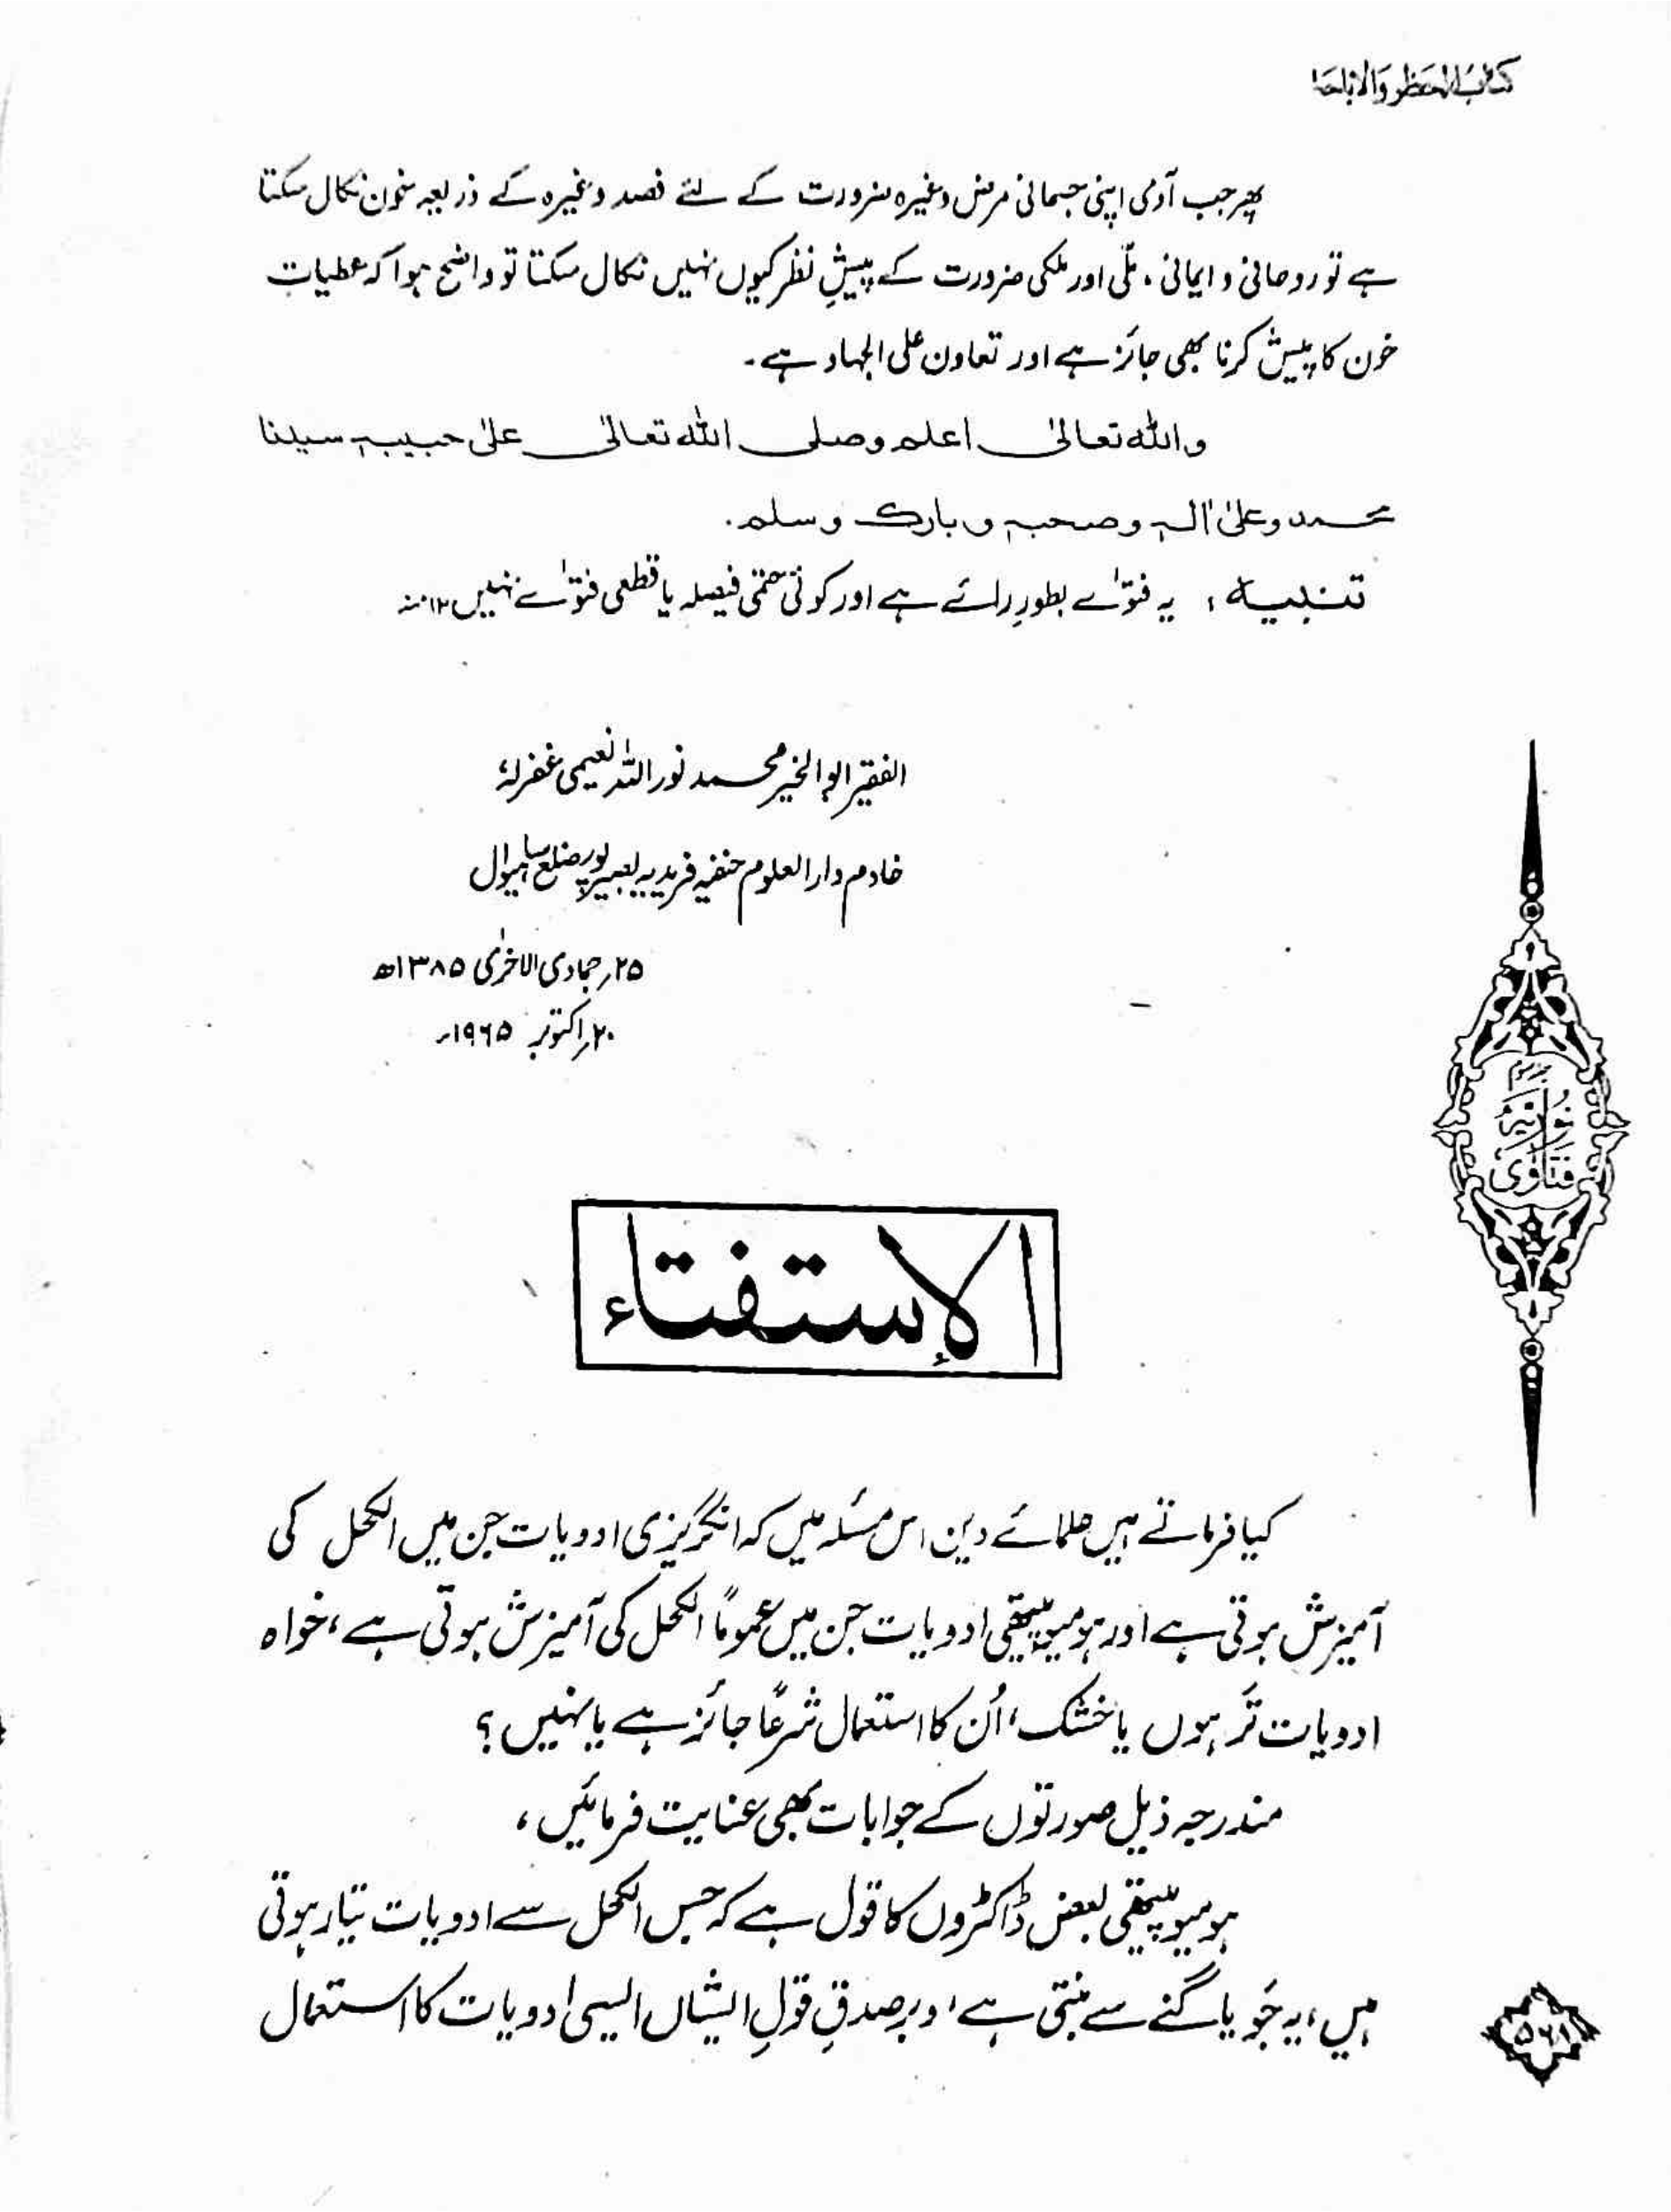 كتاب الحظر والاباحة
پھر جب آدمی اپنی جسمانی مرض وغیرہ ضرورت کے لئے فصد وغیرہ کے ذریعہ خون نکال سکتا
ہے تو روحانی و ایمانی ، ملّی اور ملکی ضرورت کے پیشِ نظر کیوں نہیں نکال سکتا تو واضح ہوا کہ عطیات
خون کا پیش کرنا بھی جائز ہے اور تعاون علی الجہاد ہے۔
واللہ تعالیٰ اعلم وصلی اللہ تعالیٰ علیٰ حبیبہ سیدنا
محمد وعلیٰ اٰلہ وصحبہ وبارک وسلم۔
تنبیہ : یہ فتوٰے بطورِ رائے ہے اور کوئی حتمی فیصلہ یا قطعی فتوٰے نہیں ۱۲ منہ
الفقیر ابوالخیر محمد نوراللہ نعیمی غفرلہٗ
خادم دارالعلوم حنفیہ فریدیہ بصیرپور ضلع ساہیوال
۲۵؍جمادی الاخرٰی ۱۳۸۵ھ
۲۰؍اکتوبر ۱۹۶۵ء
نوریہ
فتاوی
الإستفتاء
کیا فرماتے ہیں علمائے دین اس مسئلہ میں کہ انگریزی ادویات جن میں الکحل کی
آمیزش ہوتی ہے اور ہومیوپیتھی ادویات جن میں عموماً الکحل کی آمیزش ہوتی ہے ، خواہ
ادویات تَر ہوں یا خشک ، اُن کا استعمال شرعًا جائز ہے یا نہیں ؟
مندرجہ ذیل صورتوں کے جوابات بھی عنایت فرمائیں ،
ہومیوپیتھی بعض ڈاکٹروں کا قول ہے کہ جس الکحل سے ادویات تیار ہوتی
ہیں ، یہ جَو یا گنے سے بنتی ہے ، وبرصدقِ قولِ ایشاں ایسی ادویات کا استعمال
۵۶۱